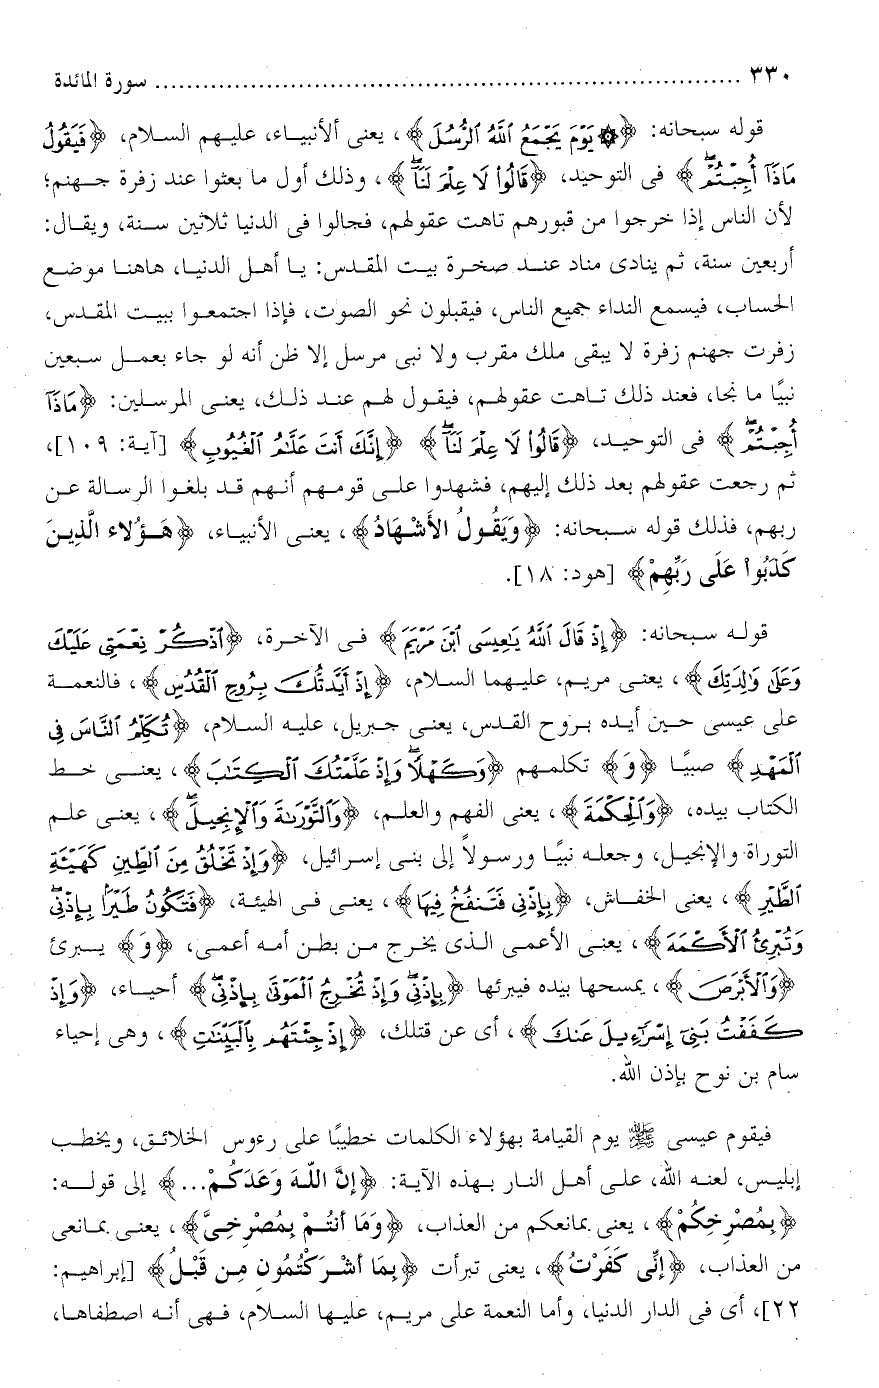 ٣٣٠ ........................................................................... سورة المائدة
قوله سبحانه: ﴿۞ يَوْمَ يَجْمَعُ ٱللَّهُ ٱلرُّسُلَ﴾، يعنى ألأنبياء، عليهم السلام، ﴿فَيَقُولُ
مَاذَآ أُجِبْتُمْ ۖ﴾ فى التوحيد، ﴿قَالُوا۟ لَا عِلْمَ لَنَآ ۖ﴾، وذلك أول ما بعثوا عند زفرة جهنم؛
لأن الناس إذا خرجوا من قبورهم تاهت عقولهم، فجالوا فى الدنيا ثلاثين سنة، ويقال:
أربعين سنة، ثم ينادى مناد عند صخرة بيت المقدس: يا أهل الدنيا، هاهنا موضع
الحساب، فيسمع النداء جميع الناس، فيقبلون نحو الصوت، فإذا اجتمعوا ببيت المقدس،
زفرت جهنم زفرة لا يبقى ملك مقرب ولا نبى مرسل إلا ظن أنه لو جاء بعمل سبعين
نبيًا ما نجا، فعند ذلك تاهت عقولهم، فيقول لهم عند ذلك، يعنى المرسلين: ﴿مَاذَآ
أُجِبْتُمْ ۖ﴾ فى التوحيد، ﴿قَالُوا۟ لَا عِلْمَ لَنَآ ۖ﴾ ﴿إِنَّكَ أَنتَ عَلَّٰمُ ٱلْغُيُوبِ﴾ [آية: ١٠٩]،
ثم رجعت عقولهم بعد ذلك إليهم، فشهدوا على قومهم أنهم قد بلغوا الرسالة عن
ربهم، فذلك قوله سبحانه: ﴿وَيَقُولُ الأَشْهَادُ﴾، يعنى الأنبياء، ﴿هَـؤُلاء الَّذِينَ
كَذَبُواْ عَلَى رَبِّهِمْ﴾ [هود: ١٨].
قوله سبحانه: ﴿إِذْ قَالَ ٱللَّهُ يَٰعِيسَى ٱبْنَ مَرْيَمَ﴾ فى الآخرة، ﴿ٱذْكُرْ نِعْمَتِى عَلَيْكَ
وَعَلَىٰ وَٰلِدَتِكَ﴾، يعنى مريم، عليهما السلام، ﴿إِذْ أَيَّدتُّكَ بِرُوحِ ٱلْقُدُسِ﴾، فالنعمة
على عيسى حين أيده بروح القدس، يعنى جبريل، عليه السلام، ﴿تُكَلِّمُ ٱلنَّاسَ فِى
ٱلْمَهْدِ﴾ صبيًا ﴿وَ﴾ تكلمهم ﴿وَكَهْلًا ۖ وَإِذْ عَلَّمْتُكَ ٱلْكِتَٰبَ﴾، يعنى خط
الكتاب بيده، ﴿وَٱلْحِكْمَةَ﴾، يعنى الفهم والعلم، ﴿وَٱلتَّوْرَىٰةَ وَٱلْإِنجِيلَ ۖ﴾، يعنى علم
التوراة والإنجيل، وجعله نبيًا ورسولاً إلى بنى إسرائيل، ﴿وَإِذْ تَخْلُقُ مِنَ ٱلطِّينِ كَهَيْـَٔةِ
ٱلطَّيْرِ﴾، يعنى الخفاش، ﴿بِإِذْنِى فَتَنفُخُ فِيهَا﴾، يعنى فى الهيئة، ﴿فَتَكُونُ طَيْرًۢا بِإِذْنِى ۖ
وَتُبْرِئُ ٱلْأَكْمَهَ﴾، يعنى الأعمى الذى يخرج من بطن أمه أعمى، ﴿وَ﴾ يبرئ
﴿وَٱلْأَبْرَصَ﴾، يمسحها بيده فيبرئها ﴿بِإِذْنِى ۖ وَإِذْ تُخْرِجُ ٱلْمَوْتَىٰ بِإِذْنِى ۖ﴾ أحياء، ﴿وَإِذْ
كَفَفْتُ بَنِىٓ إِسْرَٰٓءِيلَ عَنكَ﴾، أى عن قتلك، ﴿إِذْ جِئْتَهُم بِٱلْبَيِّنَٰتِ﴾، وهى إحياء
سام بن نوح بإذن الله.
فيقوم عيسى ﷺ يوم القيامة بهؤلاء الكلمات خطيبًا على رءوس الخلائق، ويخطب
إبليس، لعنه الله، على أهل النار بهذه الآية: ﴿إِنَّ اللّهَ وَعَدَكُمْ...﴾ إلى قوله:
﴿بِمُصْرِخِكُمْ﴾، يعنى بمانعكم من العذاب، ﴿وَمَا أَنتُمْ بِمُصْرِخِيَّ﴾، يعنى بمانعى
من العذاب، ﴿إِنِّى كَفَرْتُ﴾، يعنى تبرأت ﴿بِمَا أَشْرَكْتُمُونِ مِن قَبْلُ﴾ [إبراهيم:
٢٢]، أى فى الدار الدنيا، وأما النعمة على مريم، عليها السلام، فهى أنه اصطفاها،